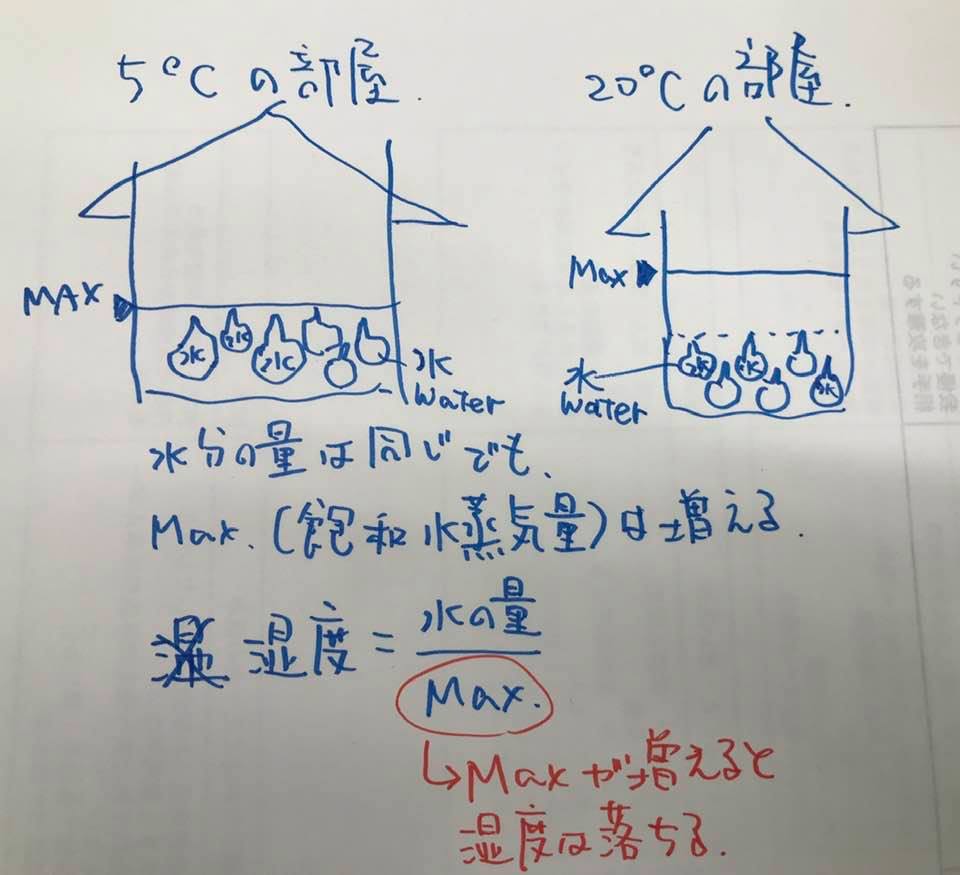 5℃の部屋.
20℃の部屋.
MAX
Max
水
水
水
水
water
水
水
水
水
water
水分の量は同じでも、
Max.(飽和水蒸気量)は増える.
湿度=水の量
Max.
↳Maxが増えると
湿度は落ちる.